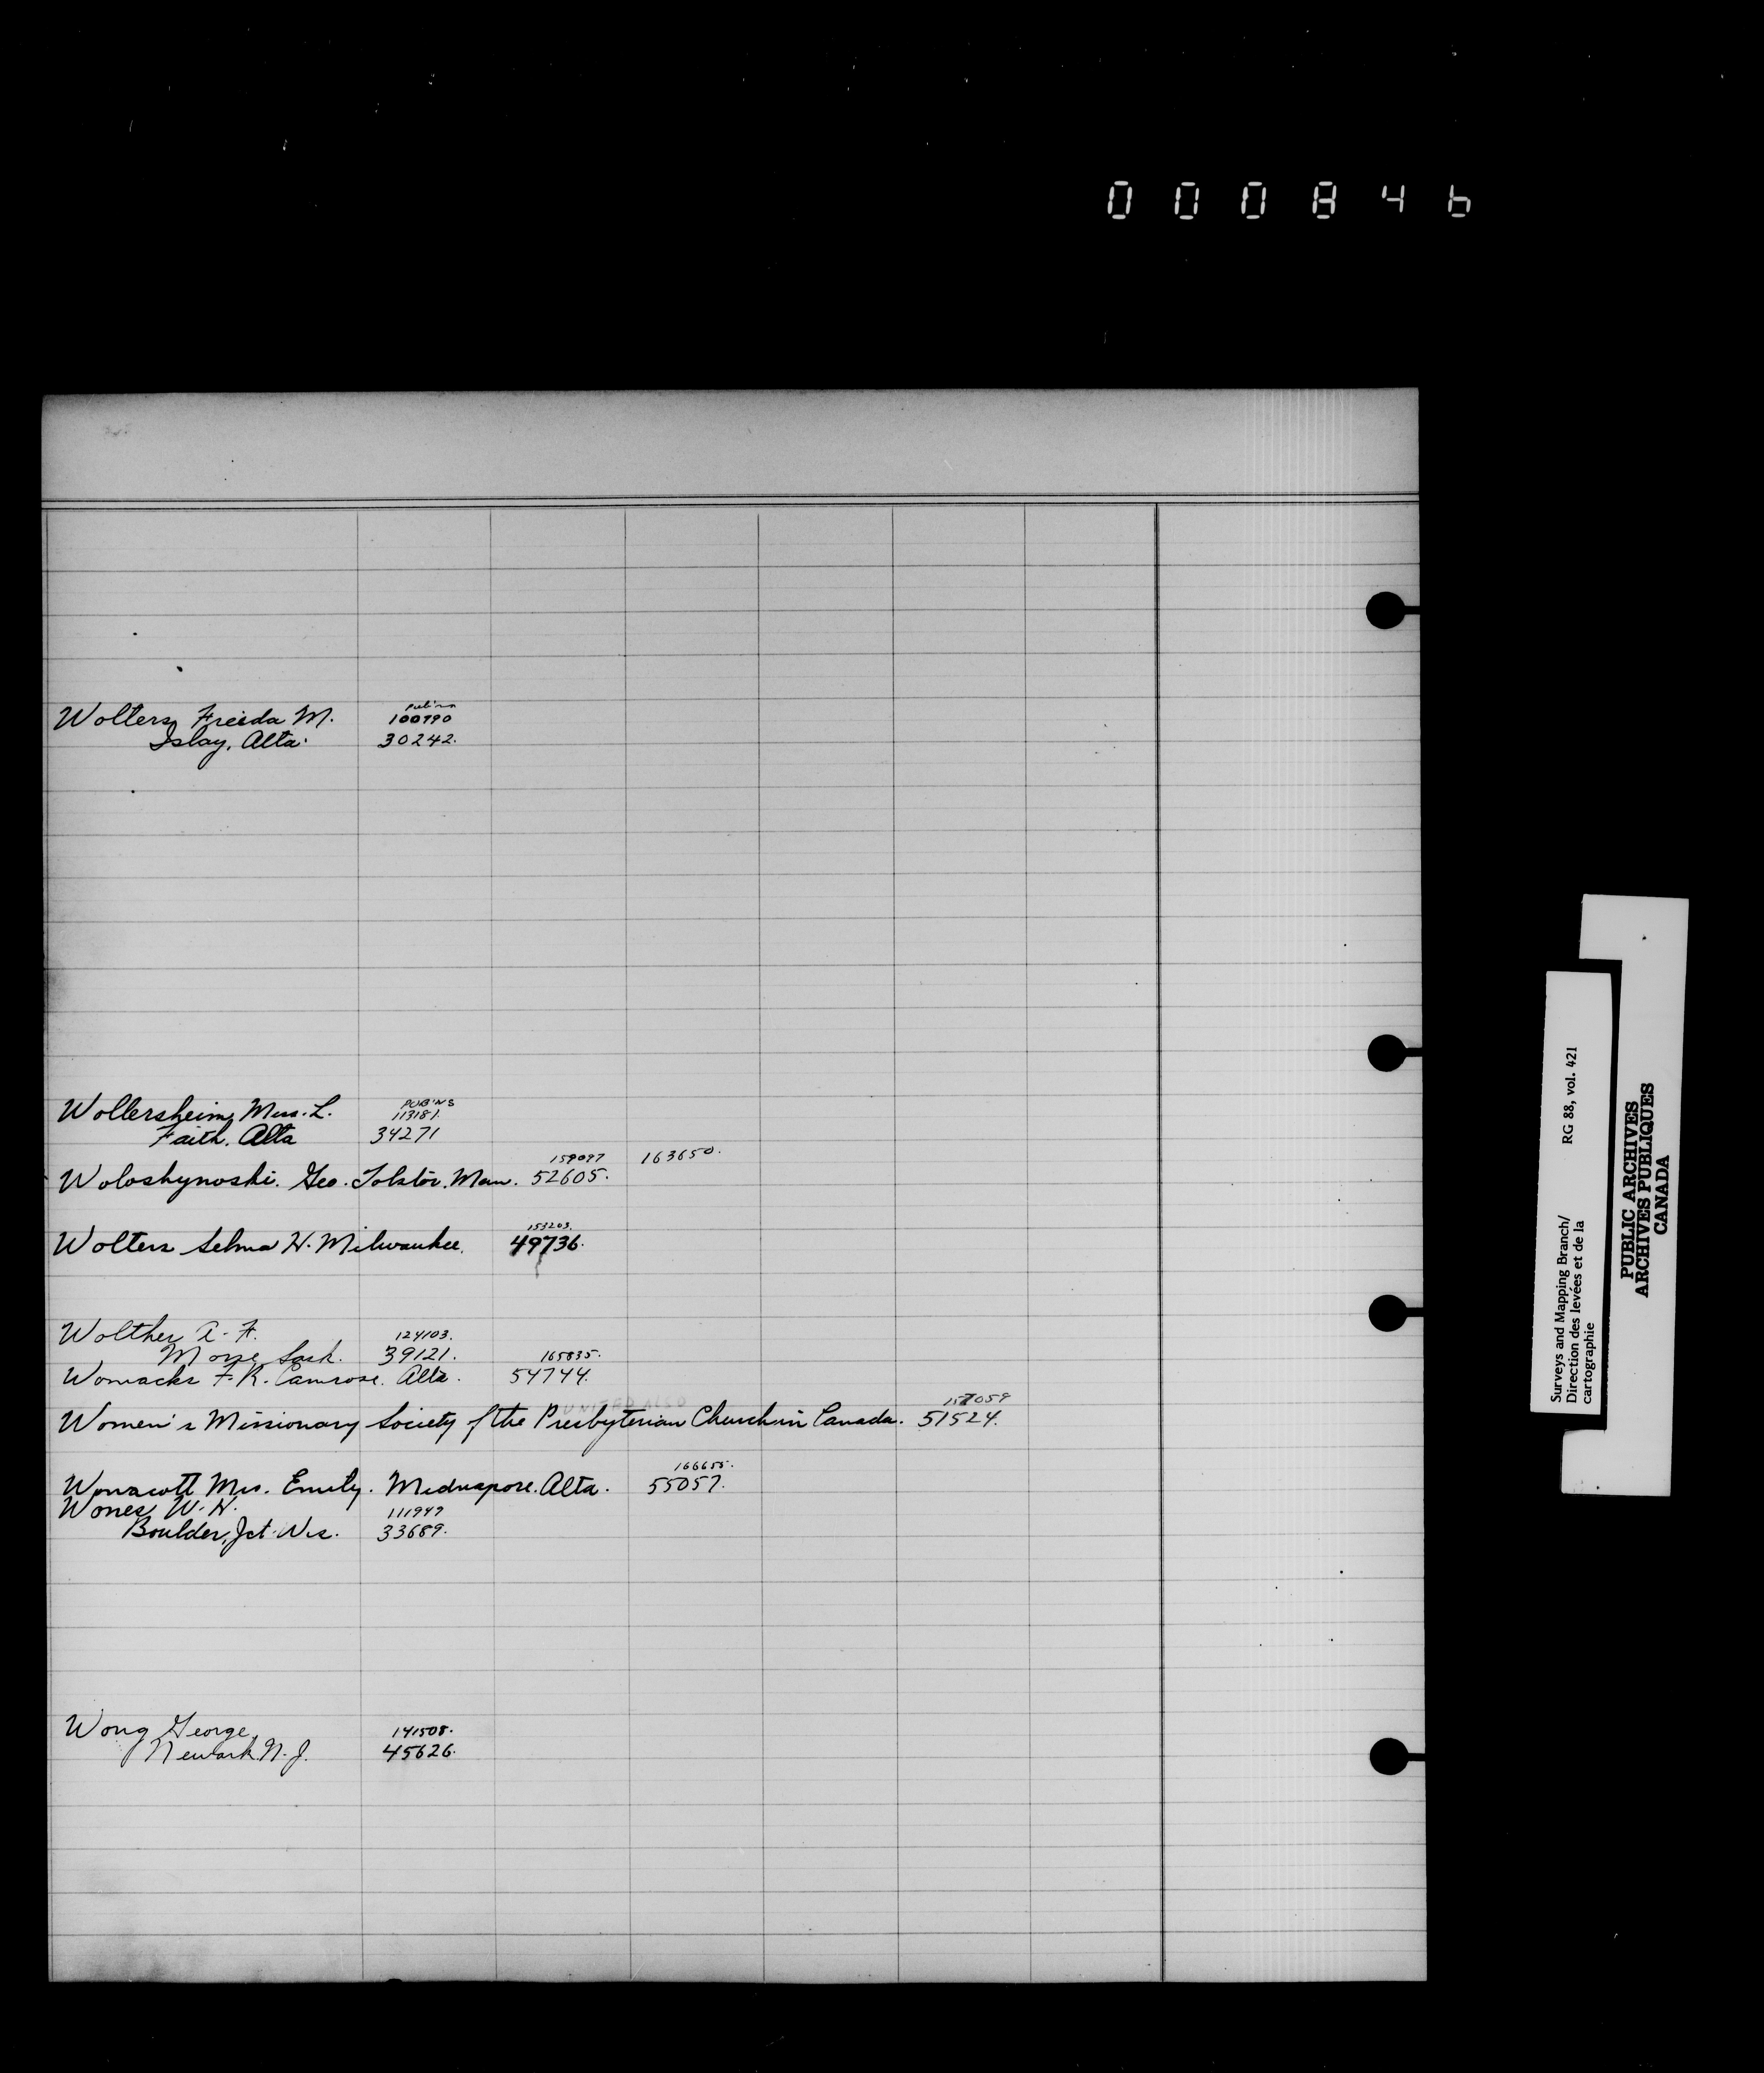 000846
Wolters, Freida M. 100790
Islay, Alta. 30242.
Wollersheim, Mrs. L. PUB'NS 113181.
Faith, Alta 34271
159097 163650.
Woloshynoski. Geo. Tolstoi, Man. 52605.
153203.
Wolters Selma H. Milwaukee. 49736.
Wolther, A. F. 124103.
Morse, Sask. 39121. 165835.
Womacks F. R. Camrose. Alta. 54744.
Women's Missionary Society of the Presbyterian Church in Canada. 51524.
166655.
Wonacott Mrs. Emily. Midnapore. Alta. 55057.
Wones, W. H. 111947
Boulder, Jct. Wis. 33689.
Wong George, 141508.
Newark, N. J. 45626.
Surveys and Mapping Branch/ RG 88, vol. 421
Direction des levées et de la
cartographie
PUBLIC ARCHIVES
ARCHIVES PUBLIQUES
CANADA